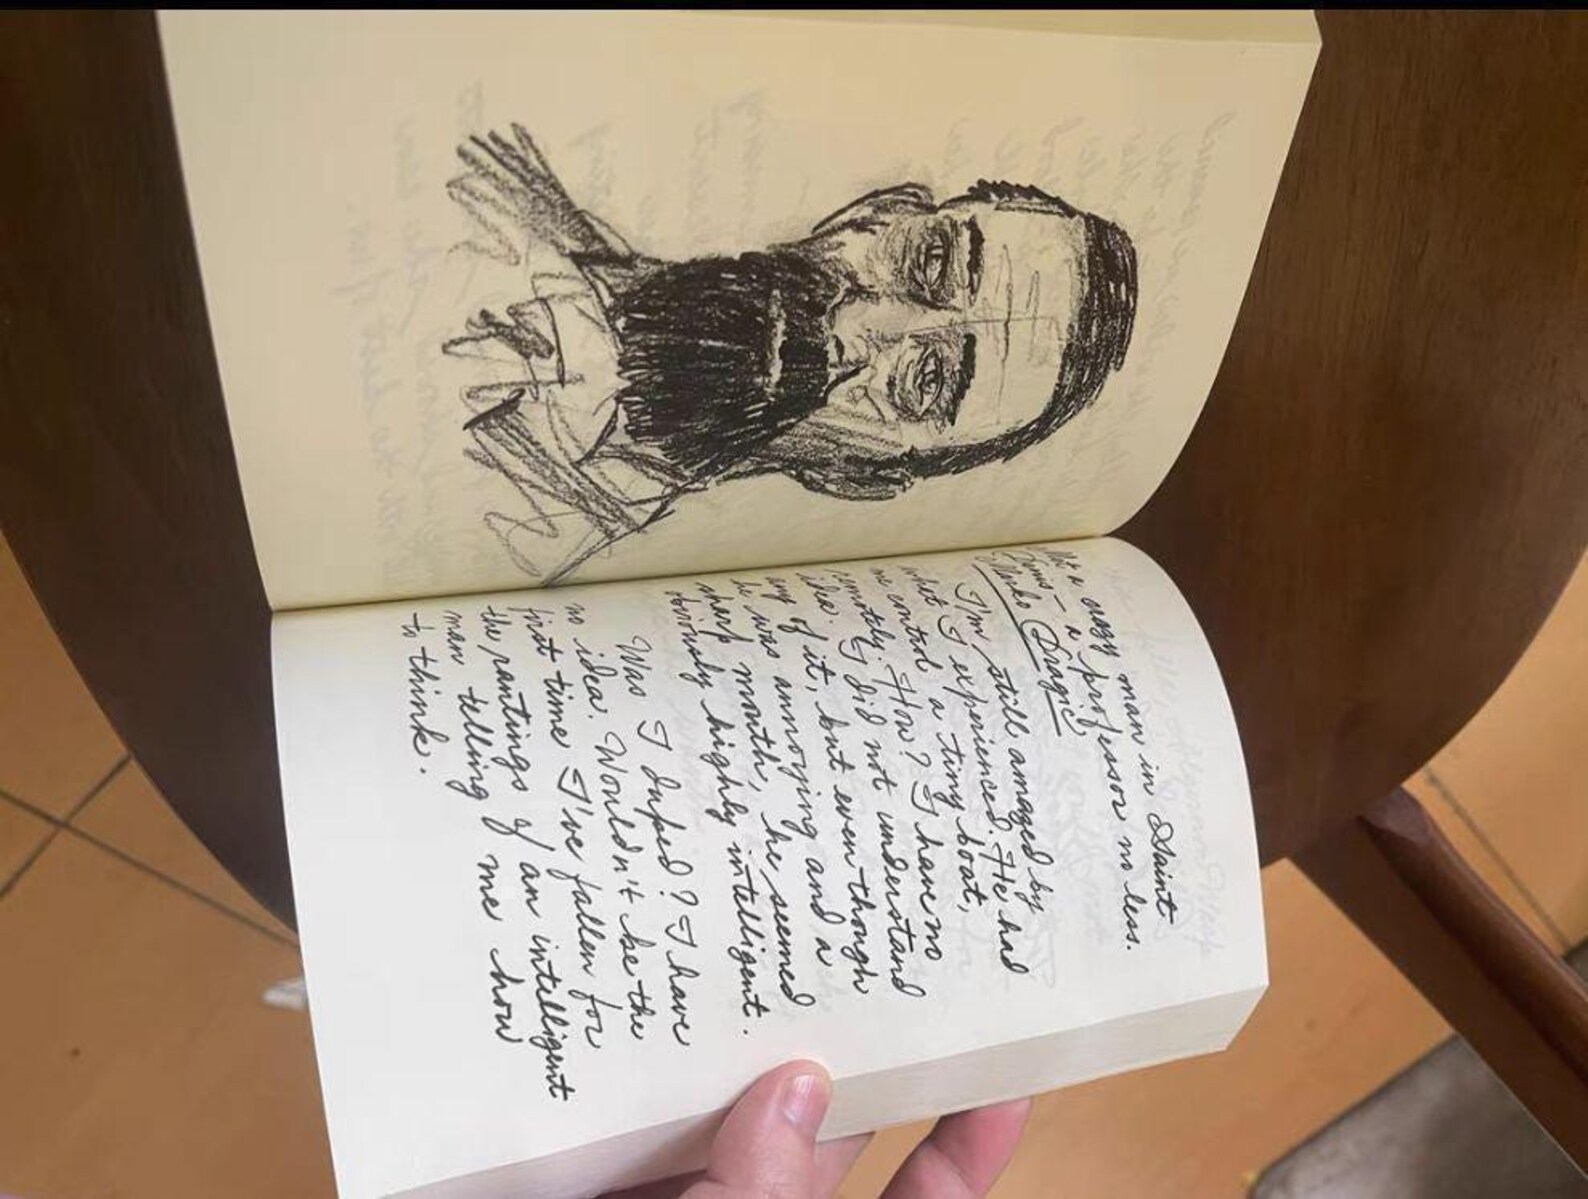 Not a crazy man in Saint
Times – a professor no less.
Marko Dragic
I'm still amazed by
what I experienced. He had
me control a tiny boat,
remotely. How? I have no
idea. I did not understand
any of it, but even though
he was annoying and a
sharp mouth, he seemed
obviously highly intelligent.
Was I duped? I have
no idea. Wouldn't be the
first time I've fallen for
the rantings of an intelligent
man telling me how
to think.